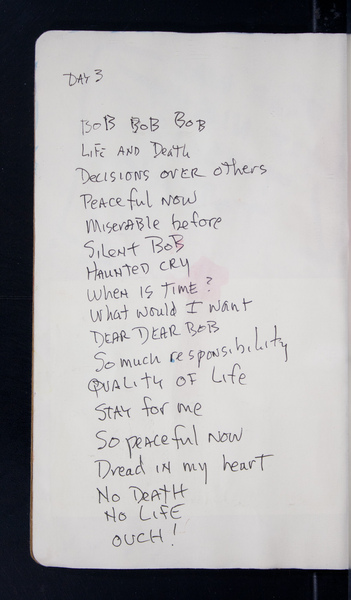 DAY 3
BoB BoB BoB
LiFE AND DEath
DECISIONS OVER others
PEACEful NOW
MiserABle before
SilENT BoB
HAUNTED CRY
WHEN IS TIME?
What would I want
DEAR DEAR BOB
So much responsibility
QUALITY OF LifE
STAY for me
So pEACEful NOW
Dread IN my heart
No DEATH
No LIFE
OUCH!